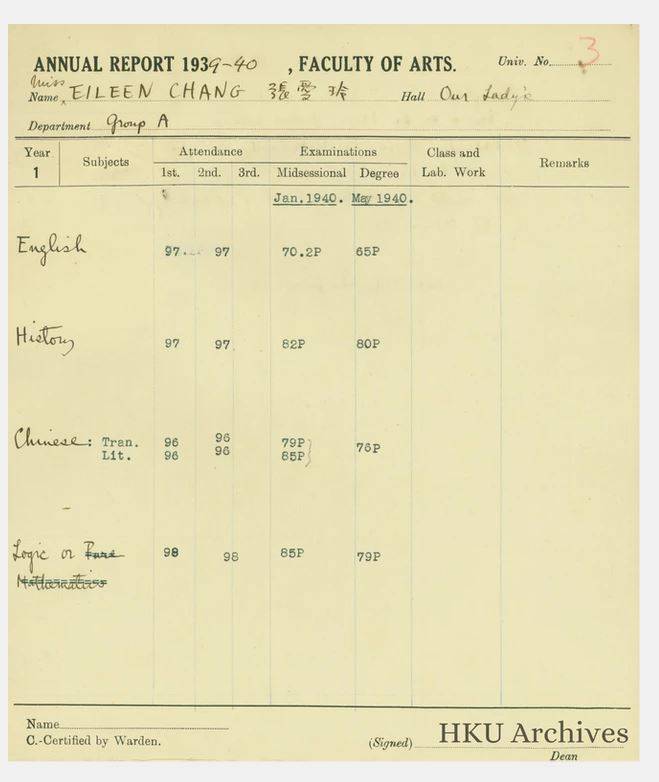 ANNUAL REPORT 1939-40 , FACULTY OF ARTS. Univ. No. 3
Miss
Name EILEEN CHANG 張愛玲 Hall Our Lady's
Department Group A
Year Subjects Attendance Examinations Class and Lab. Work Remarks
1 1st. 2nd. 3rd. Midsessional Degree
Jan.1940. May 1940.
English 97 97 70.2P 65P
History 97 97 82P 80P
Chinese: Tran. 96 96 79P 76P
Lit. 96 96 85P
Logic or Pure 98 98 85P 79P
Mathematics
Name
C.-Certified by Warden. (Signed) HKU Archives
Dean